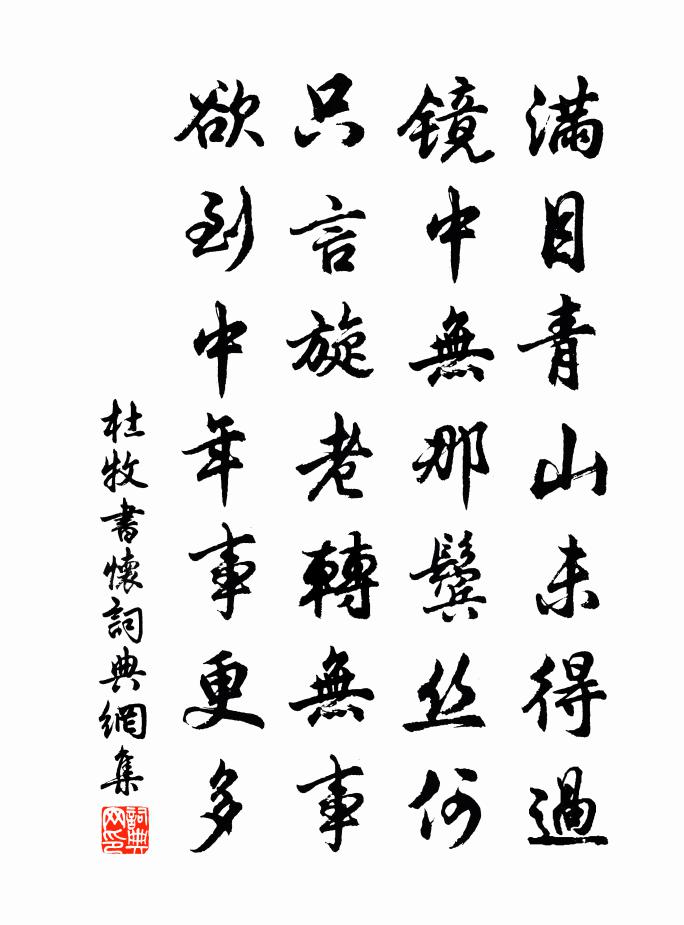 滿目青山未得過
鏡中無那鬓丝何
只言旋老轉無事
欲到中年事更多
杜牧書懷詞典網集
詞典网印